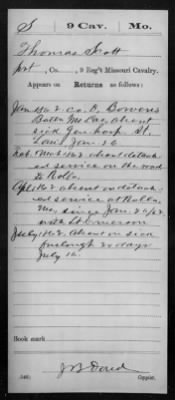 S | 9 Cav. | Mo.
Thomas Scott
Pvt, Co. , 9 Reg't Missouri Cavalry.
Appears on Returns as follows:
Jan 1862, Co. D. Bowen's
Battn Mo Cav, absent
sick Gen hosp St.
Louis Jan 26
Feb. Mch 162 absent detach-
ed service on the road
to Rolla.
Apl 162 absent on detach-
ed service at Rolla,
Mo, since Jan. 20/62
with Lt Emerson
July 162. Absent on sick
furlough 20 days
July 16.
Book mark
(546)
Copyist.